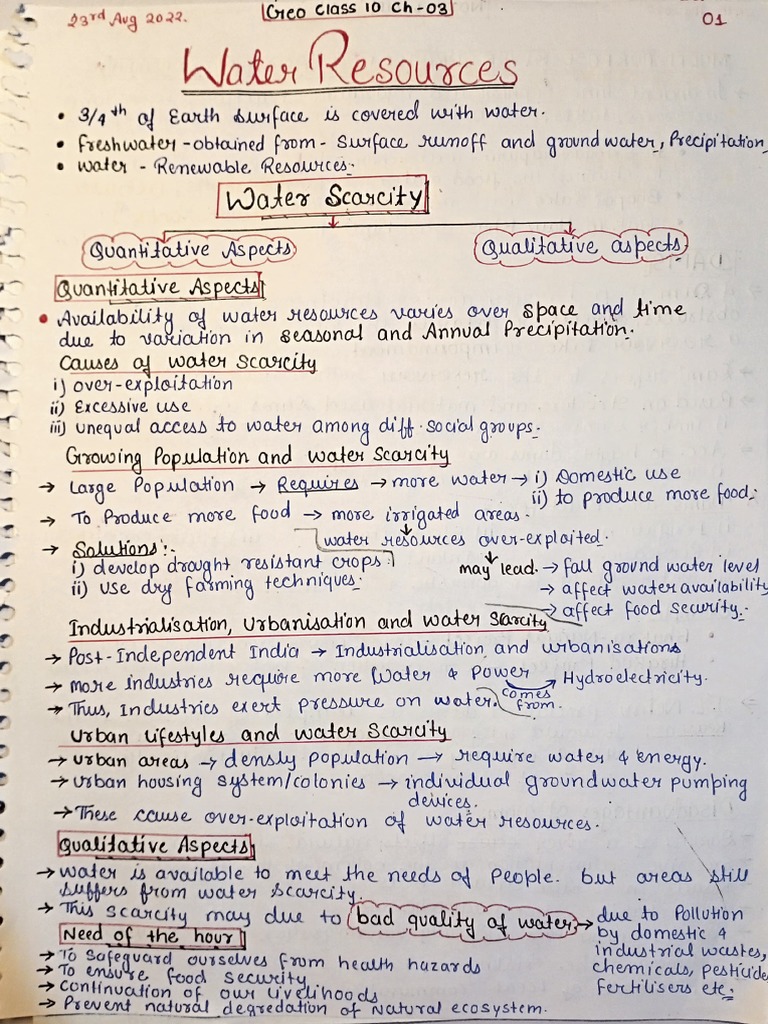 23rd Aug 2022.
Geo Class 10 Ch-03
01
Water Resources
• 3/4th of Earth surface is covered with water.
• freshwater - obtained from - surface runoff and ground water, Precipitation
• water - Renewable Resources.
Water Scarcity
Quantitative Aspects
Qualitative aspects
Quantitative Aspects
• Availability of water resources varies over space and time
due to variation in seasonal and Annual Precipitation.
Causes of water scarcity
i) over-exploitation
ii) Excessive use
iii) unequal access to water among diff. social groups.
Growing Population and water Scarcity
→ Large Population → Requires → more water → i) Domestic use
ii) to produce more food.
→ To Produce more food → more irrigated areas.
water resources over-exploited.
→ Solutions:-
i) develop drought resistant crops.
ii) use dry farming techniques.
may lead. → fall ground water level
→ affect water availability
→ affect food security.
Industrialisation, Urbanisation and water Starcity
→ Post-Independent India → Industrialisation and urbanisations
→ more industries require more water & Power comes from. Hydroelectricity.
→ Thus, Industries exert pressure on water.
Urban lifestyles and water Scarcity
→ urban areas → densly population → require water & energy.
→ urban housing system/colonies → individual groundwater pumping
devices.
→ These cause over-exploitation of water resources.
Qualitative Aspects
→ water is available to meet the needs of People. but areas still
suffers from water scarcity.
→ This scarcity may due to bad quality of water → due to Pollution
by domestic &
industrial wastes,
chemicals, pesticide
fertilisers etc.
Need of the hour
→ To safeguard ourselves from health hazards
→ To ensure food security
→ Continuation of our livelihoods
→ Prevent natural degredation of Natural ecosystem.